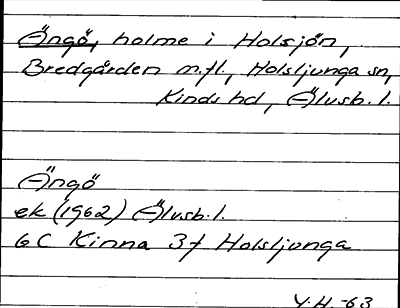 Ängö, holme i Holsjön,
Bredgården m.fl., Holsljunga sn,
Kinds hd, Älvsb. l.
Ängö
ek (1962) Älvsb. l.
6C Kinna 3f Holsljunga
Y.H. -63